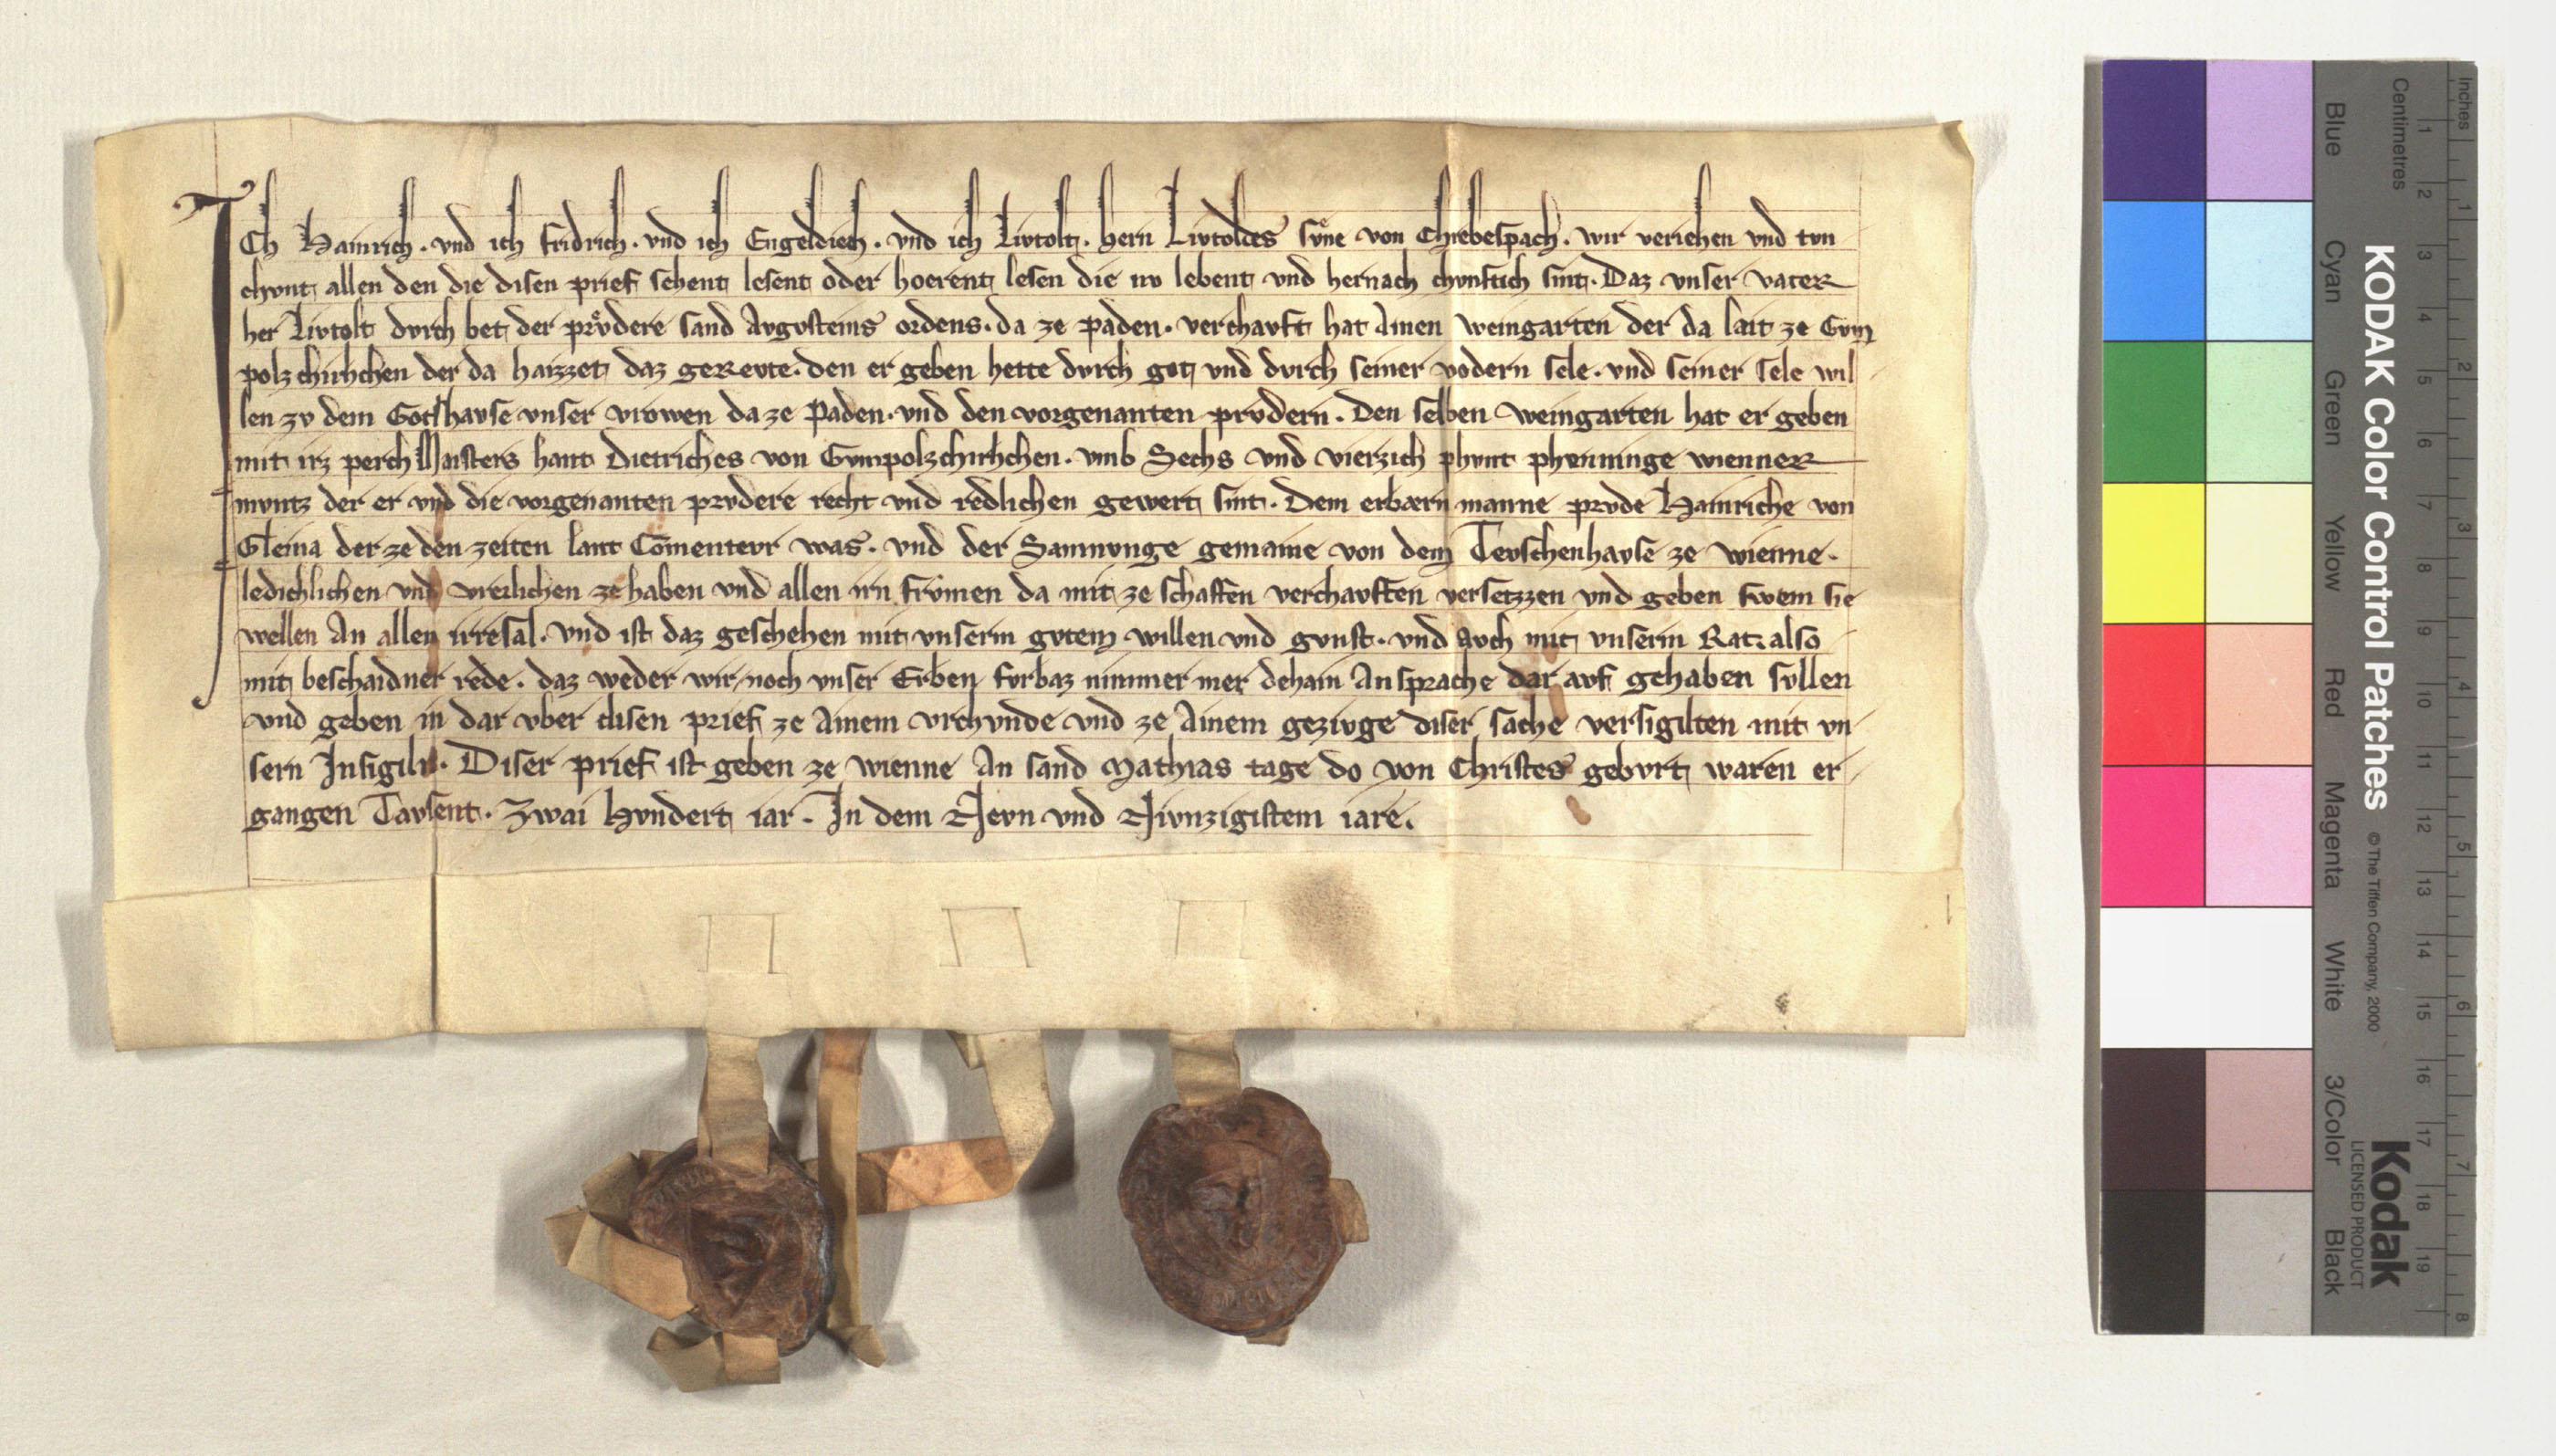 ICh Hainrich. vnd ich fridrich. vnd ich Engeldich. vnd ich Livtolt. hern Livtoldes svͤne von Chrebespach. wir veriehen vnd tvn
chvnt allen den die disen prief sehent lesent oder hoerent lesen die nv lebent vnd hernach chvnftich sint. Daz vnser vater
her Livtolt dvrch bet der prvͦdere sand Avgvsteins ordens. da ze paden. verchavft hat ainen weingarten der da lait ze Gvm
polzchirhchen der da haizzet daz geRevte. den er geben hette dvrch got vnd dvrch seiner vodern sele. vnd seiner sele wil
len zv dem Gotshavse vnser vrowen da ze Paden. vnd den vorgenanten prvdern. Den selben weingarten hat er geben
mit irz perch Maisters hant Dietriches von Gvmpolzchirhchen. vmb Sechs vnd vierzich phvnt phenninge wienner
mvntz der er vnd die vorgenanten prvdere recht vnd redlichen gewert sint. Dem erbærn manne prvde Hainriche von
Gleina der ze den zeiten lant Cōmentevr was. vnd der Samnvnge gemaine von dem Tevschenhavse ze wienne.
ledichlichen vnd vreilichen ze haben vnd allen irn frvmen da mit ze schaffen verchavffen versetzzen vnd geben swem sie
wellen An allen irresal. vnd ist daz geschehen mit vnserm gvtem willen vnd gvnst. vnd avch mit vnserm Rat. also
mit beschaidner rede. daz weder wir noch vnser Erben fvrbaz nimmer mer dehain Ansprache dar avf gehaben svllen
vnd geben in dar vber disen prief ze ainem vrchvnde vnd ze ainem gezivge diser sache versigilten mit vn
sern Insigiln. Diser prief ist geben ze wienne An sand Mathias tage do von Christes gebvrt waren er
gangen Tavsent. Zwai hvndert iar. In dem Nevn vnd Nivnzigistem iare.
KODAK Color Control Patches © The Tiffen Company, 2000
Kodak
LICENSED PRODUCT
Blue Cyan Green Yellow Red Magenta White 3/Color Black
Centimetres 1 2 3 4 5 6 7 8 9 10 11 12 13 14 15 16 17 18 19
Inches 1 2 3 4 5 6 7 8